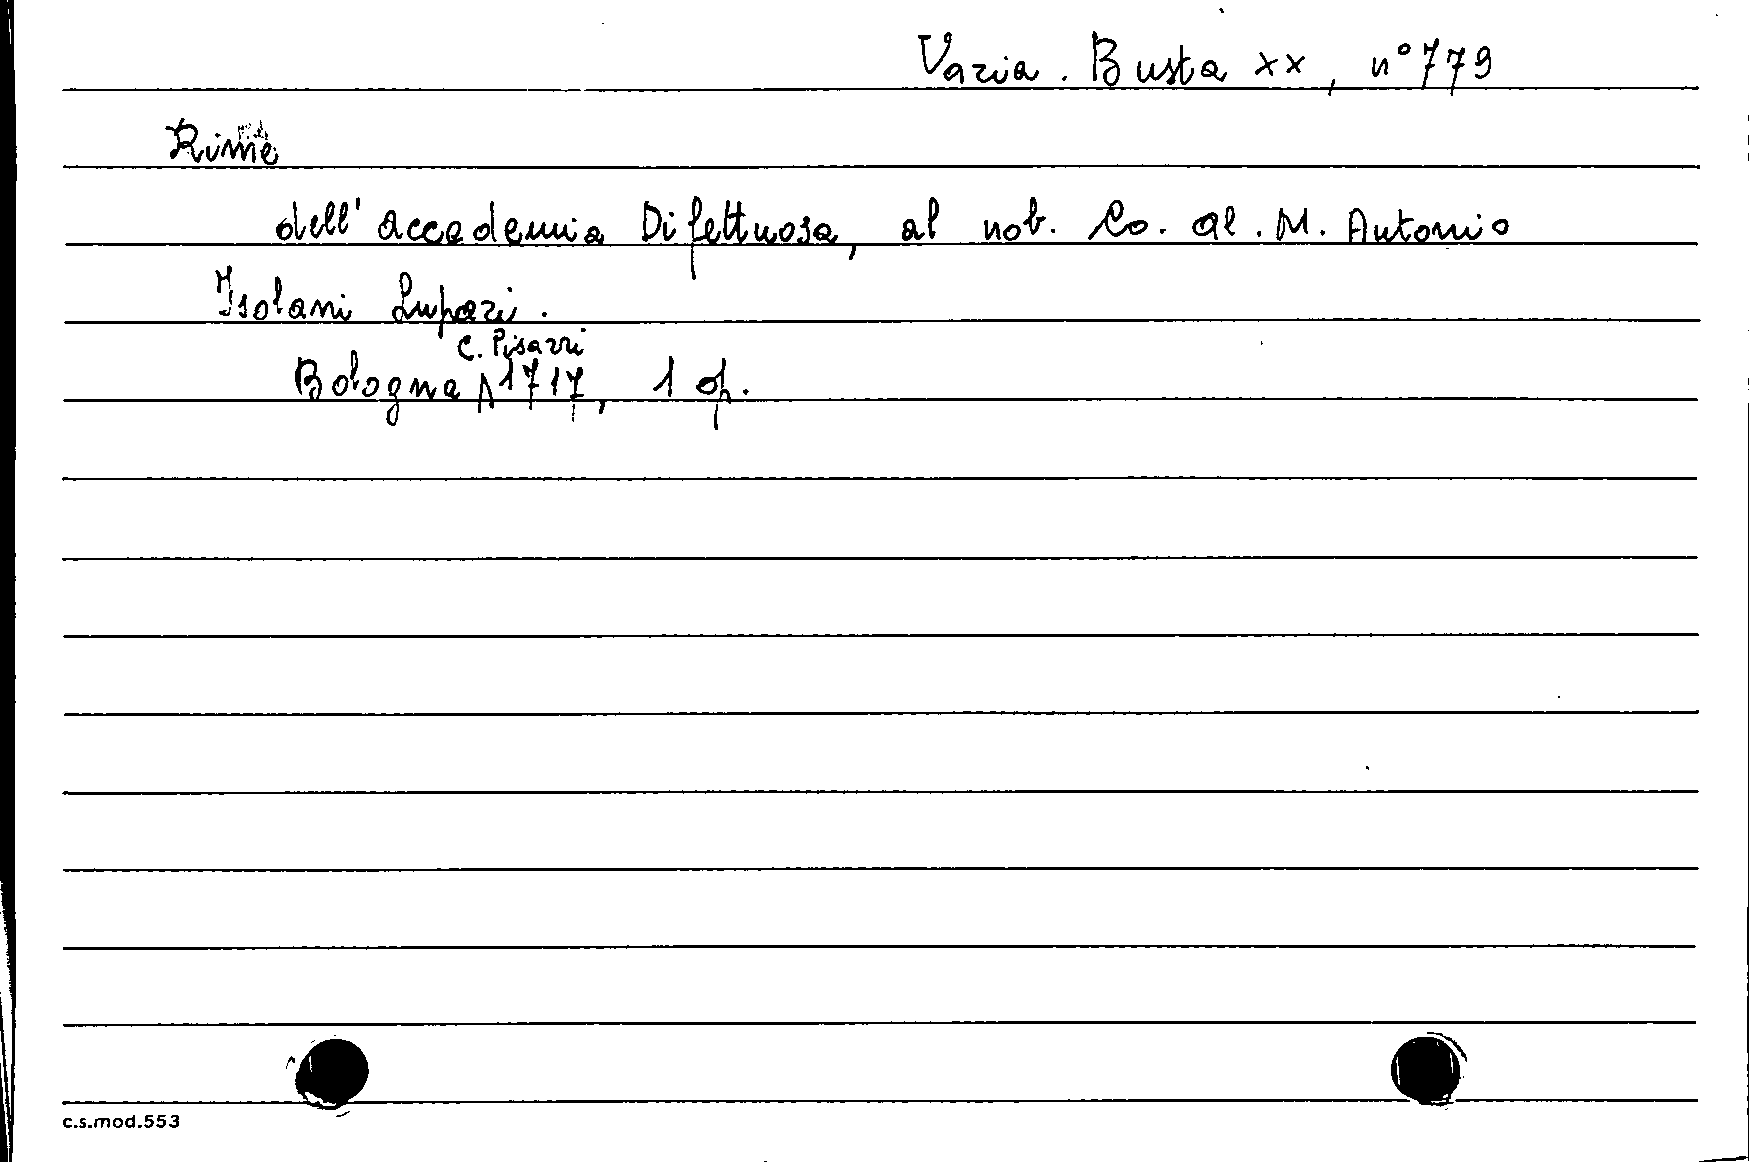 Varia. Busta XX, n° 779
Rime
dell' accademia Difettuosa, al nob. Co. al. M. Antonio
Isolani Lupari.
C. Pisarri
Bologna 1717, 1 op.
c.s.mod.553